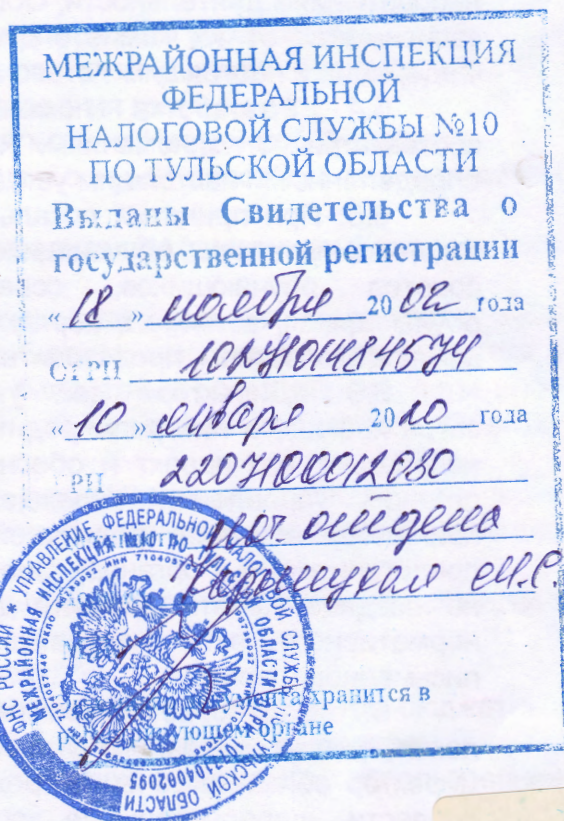 МЕЖРАЙОННАЯ ИНСПЕКЦИЯ
ФЕДЕРАЛЬНОЙ
НАЛОГОВОЙ СЛУЖБЫ №10
ПО ТУЛЬСКОЙ ОБЛАСТИ
Выданы Свидетельства о
государственной регистрации
« 18 » ноября 2002 года
ОГРН 1027101484574
« 10 » января 2020 года
ГРН 2207100012080
нач. отдела
М.С.
хранится в
органе
ФНС РОССИИ * УПРАВЛЕНИЕ ФЕДЕРАЛЬНОЙ НАЛОГОВОЙ СЛУЖБЫ ПО ТУЛЬСКОЙ ОБЛАСТИ
МЕЖРАЙОННАЯ ИНСПЕКЦИЯ №10 ПО ТУЛЬСКОЙ ОБЛАСТИ